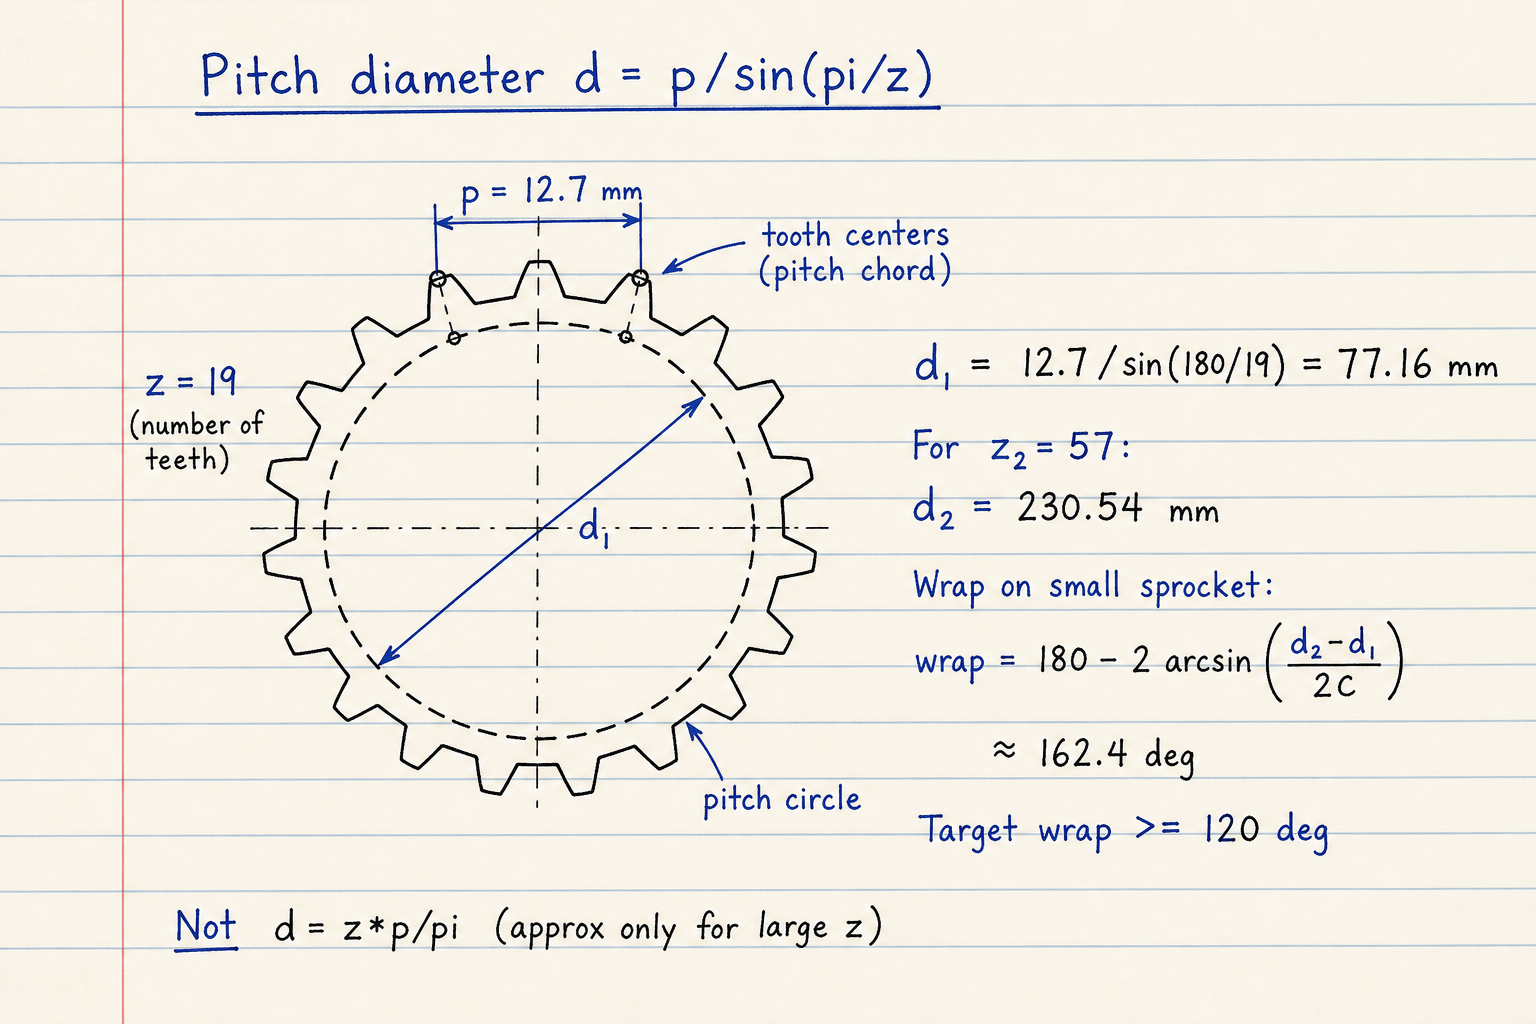 Pitch diameter d = p/sin(pi/z)
p = 12.7 mm
tooth centers
(pitch chord)
z = 19
(number of
teeth)
d₁
pitch circle
d₁ = 12.7/sin(180/19) = 77.16 mm
For z₂ = 57:
d₂ = 230.54 mm
Wrap on small sprocket:
wrap = 180 - 2 arcsin ((d₂-d₁)/(2C))
≈ 162.4 deg
Target wrap >= 120 deg
Not d = z*p/pi (approx only for large z)